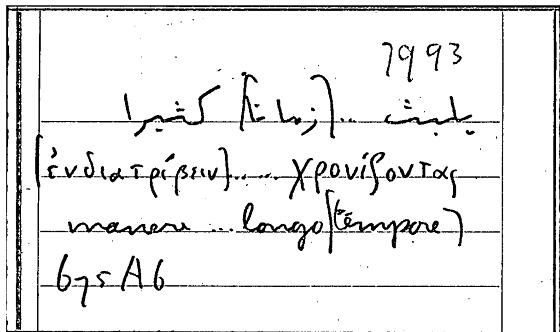 7993
يلبث ... [زمانا] كثيرا
[ἐνδιατρίβειν] ..... χρονίζοντας
manere ... longo [tempore]
675 A6